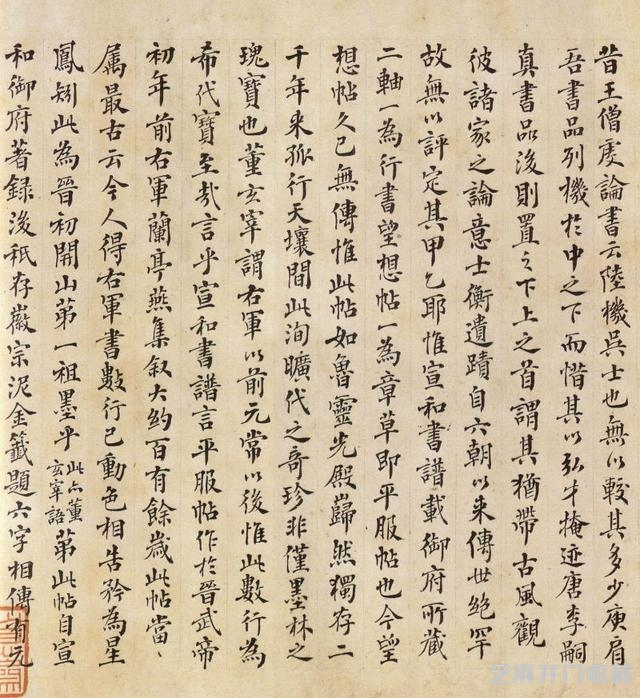 昔王僧虔論書云陸機吳士也無以較其多少庾肩
吾書品列機於中之下而惜其以弘才掩迹唐李嗣
真書品後則置之下上之首謂其猶帶古風觀
彼諸家之論意士衡遺蹟自六朝以來傳世絕罕
故無以評定其甲乙耶惟宣和書譜載御府所藏
二軸一為行書望想帖一為章草即平服帖也今望
想帖久已無傳惟此帖如魯靈光殿巋然獨存二
千年來孤行天壤間此洵曠代之奇珍非僅墨林之
瑰寶也董玄宰謂右軍以前元常以後惟此數行為
希代寶至哉言乎宣和書譜言平服帖作於晉武帝
初年前右軍蘭亭燕集敘大約百有餘歲此帖當丶
属最古云今人得右軍書數行已動色相告矜為星
鳳矧此為晉初開山第一祖墨乎此亦董玄宰語第此帖自宣
和御府著錄後秖存徽宗泥金籤題六字相傳有元
芝麻开门收藏